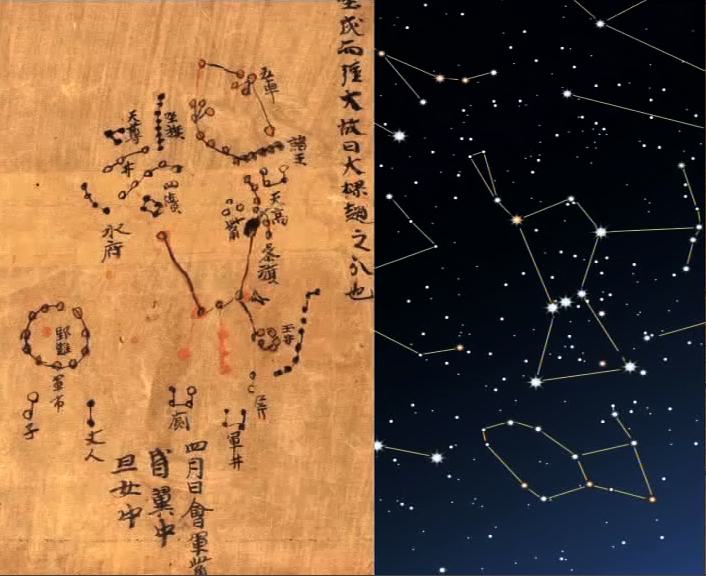 成而強大故曰大梁趙之分也
五車
諸王
坐旗
天尊
井
四瀆
天高
觜
參旗
水府
玉井
野雞
軍市
屏
廁
軍井
丈人
子
四月日會畢觜
昏翼中
旦女中